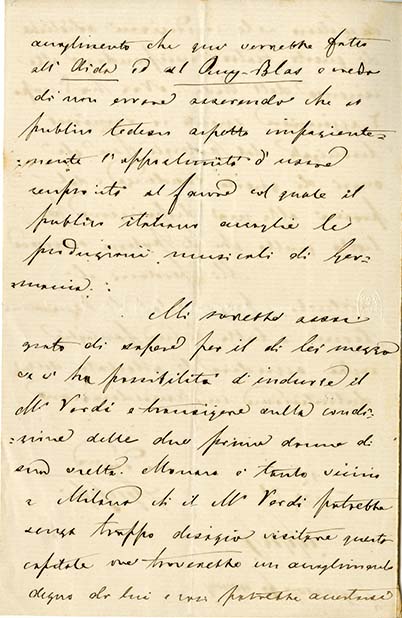 accoglimento che qui verrebbe fatto
all' Aida ed al Ruy-Blas e credo
di non errare asserendo che il
publico tedesco aspetta impaziente=
=mente l'opportunità d'usare
reciprocità al favore col quale il
publico italiano accoglie le
produzioni musicali di Ger=
=mania.
Mi sarebbe assai
grato di sapere per il di lei mezzo
se v'ha possibilità d'indurre il
Mo Verdi a transigere sulla condi=
=zione delle due prime donne di
sua scelta. Monaco è tanto vicino
a Milano che il Mo Verdi potrebbe
senza troppo disagio visitare questa
capitale ove troverebbe un accoglimento
degno di lui e così potrebbe accertarsi